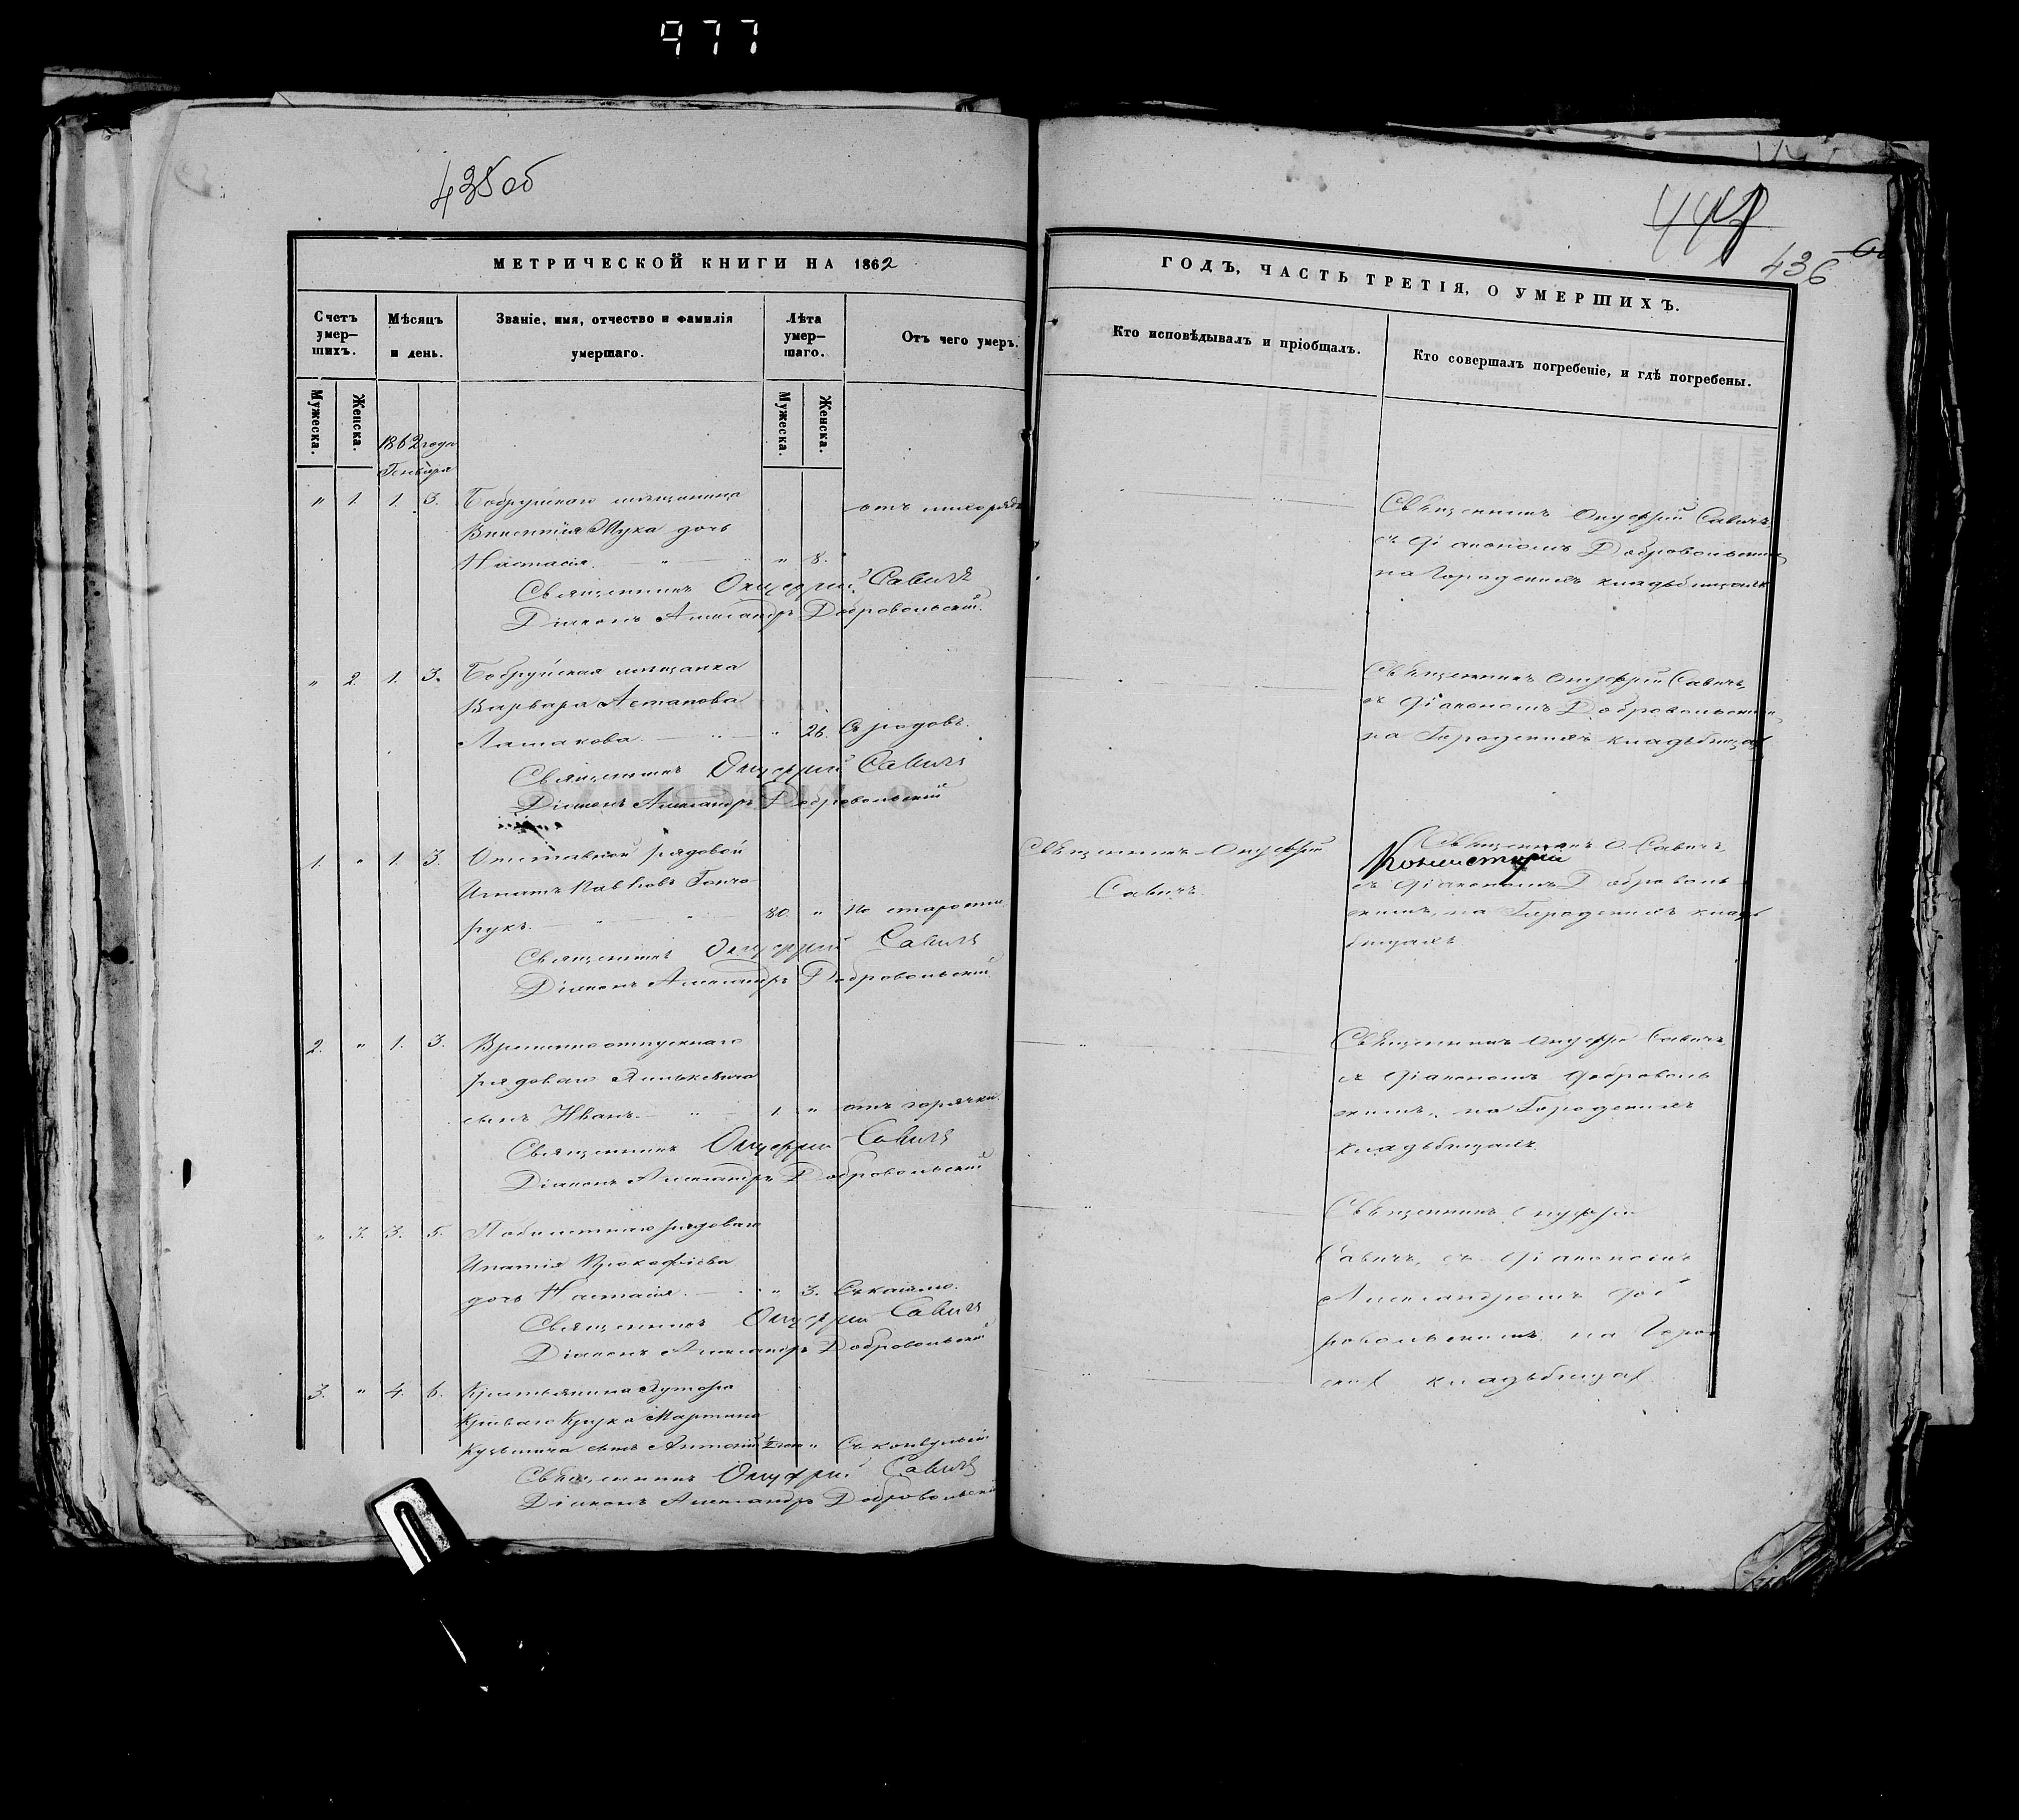 977
435об
448
436
МЕТРИЧЕСКОЙ КНИГИ НА 1862
Счетъ умер-шихъ.
Мѣсяцъ и день.
Званіе, имя, отчество и фамилія умершаго.
Лѣта умер-шаго.
Отъ чего умеръ.
Мужеска.
Женска.
Мужеска.
Женска.
1862 года
Генваря
" 1. 1. 3. Бобруйскаго мѣщанина
Викентія Жука дочь
Настасія. " " 8. отъ лихорадк
Священникъ Онуфрій Савичъ
Діаконъ Александръ Добровольскій.
" 2. 1. 3. Бобруйская мѣщанка
Варвара Астапова
Латакова. " " 26. Съ родовъ.
Священникъ Онуфрій Савичъ
Діаконъ Александръ Добровольскій
1. " 1. 3. Отставной рядовой
Игнатъ Павловъ Гонча
рукъ. " 80. " По старости.
Священникъ Онуфрій Савичъ
Діаконъ Александръ Добровольскій.
2. " 1. 3. Временноотпускнаго
рядоваго Янцкевича
сынъ Иванъ. " 1. " отъ горячки.
Священникъ Онуфрій Савичъ
Діаконъ Александръ Добровольскій
" 3. 3. 5. рядоваго
Игнатія Прокофіева
дочь Настасія. " 3. Съ кашлю.
Священникъ Онуфрій Савичъ
Діаконъ Александръ Добровольскій
3. " 4. 6. Крестьянина Хутора
Криваго Крука Мартина
Кузьмича сынъ Антоній " Съ конвульсій
Священникъ Онуфрій Савичъ
Діаконъ Александръ Добровольскій
ГОДЪ, ЧАСТЬ ТРЕТІЯ, О УМЕРШИХЪ.
Кто исповѣдывалъ и пріобщалъ.
Кто совершалъ погребеніе, и гдѣ погребены.
Священникъ Онуфрій Савичъ,
съ Діакономъ Добровольскимъ
на Городскихъ кладбищахъ
Священникъ Онуфрій Савичъ,
съ Діакономъ Добровольскимъ,
на Городскихъ кладбищах
Священникъ Онуфрій
Савичъ.
Священникъ О. Савичъ
съ Діакономъ Доброволь
скимъ, на Городскихъ клад
бищахъ
Священникъ Онуфрій Савичъ
съ Діакономъ Доброволь
скимъ, на Городскихъ
кладбищахъ.
Священникъ Онуфрій
Савичъ, съ Діакономъ
Александромъ Доб
ровольскимъ, на Город
ских кладбищах.